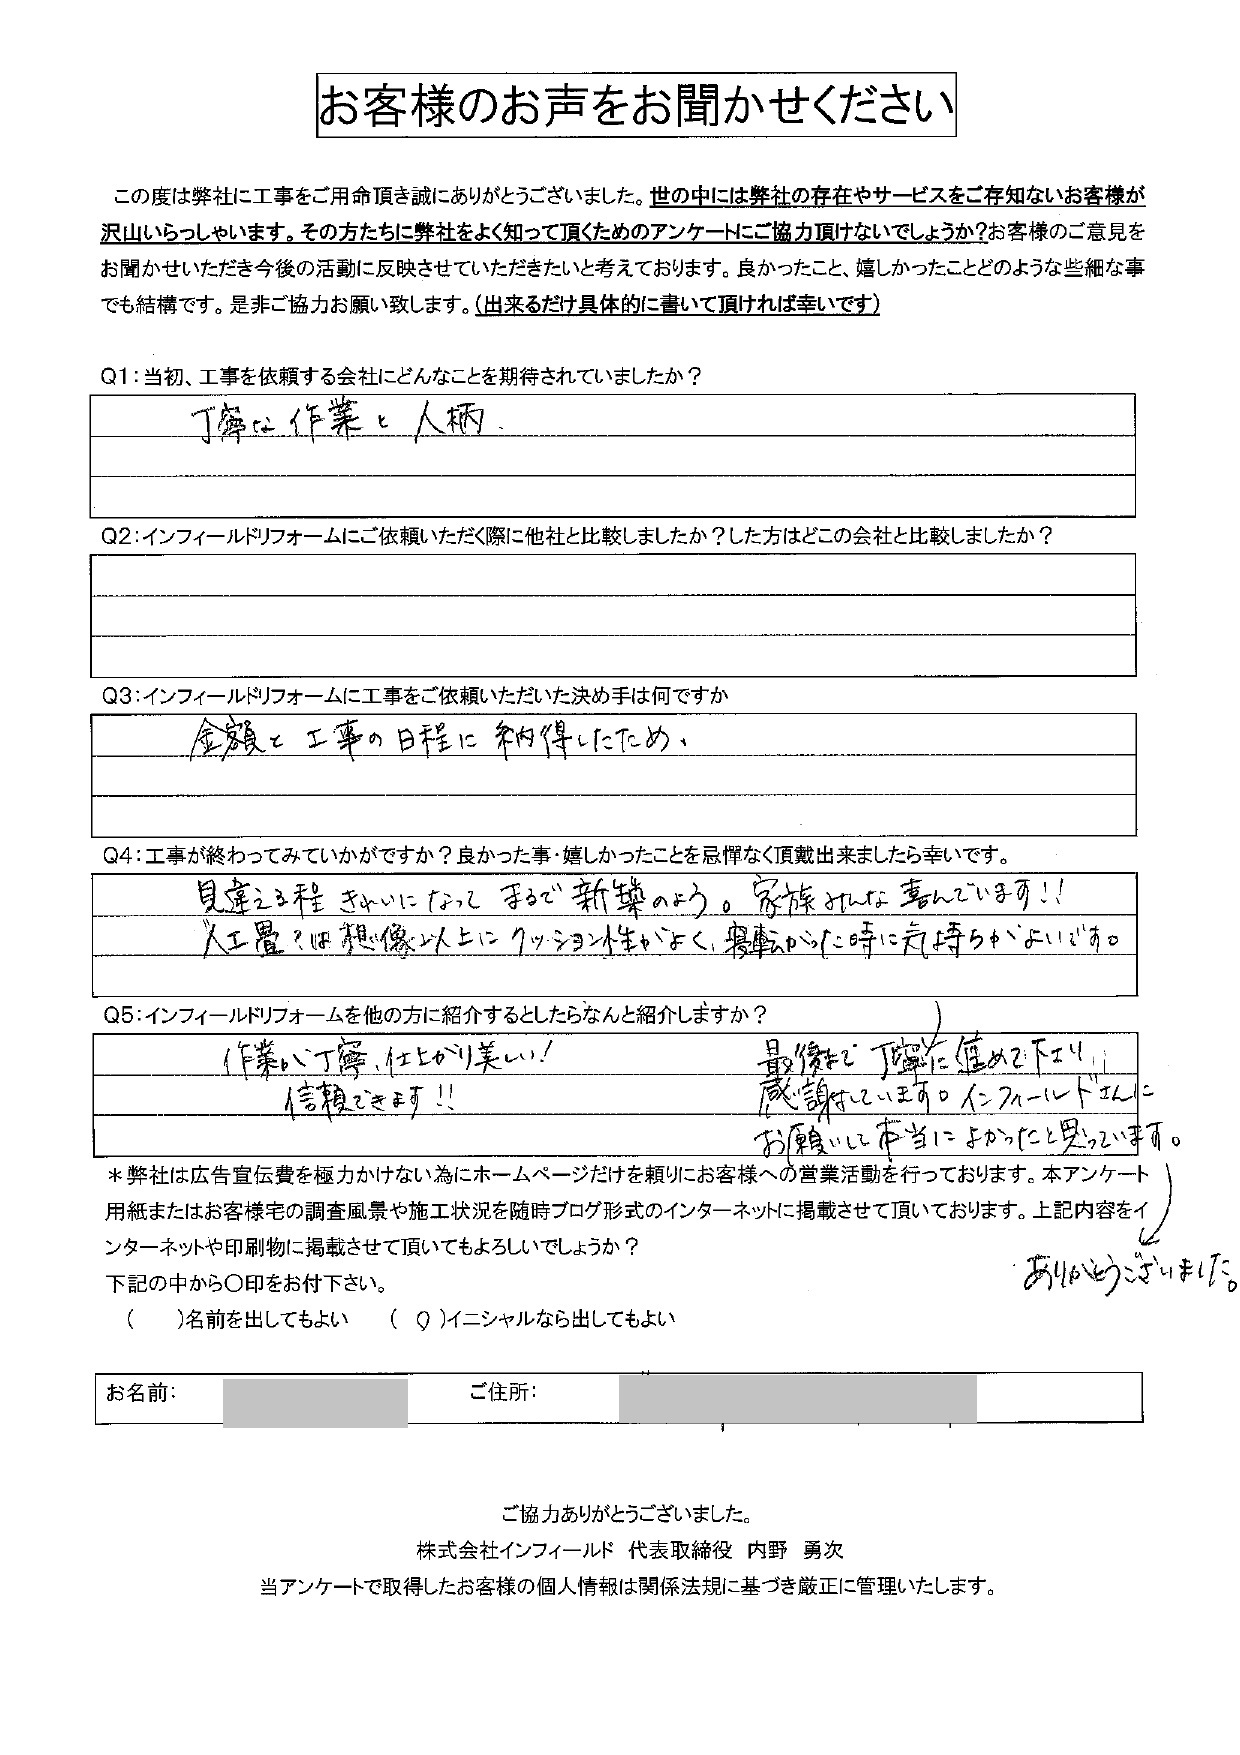 お客様のお声をお聞かせください
この度は弊社に工事をご用命頂き誠にありがとうございました。世の中には弊社の存在やサービスをご存知ないお客様が
沢山いらっしゃいます。その方たちに弊社をよく知って頂くためのアンケートにご協力頂けないでしょうか?お客様のご意見を
お聞かせいただき今後の活動に反映させていただきたいと考えております。良かったこと、嬉しかったことどのような些細な事
でも結構です。是非ご協力お願い致します。(出来るだけ具体的に書いて頂ければ幸いです)
Q1:当初、工事を依頼する会社にどんなことを期待されていましたか?
丁寧な作業と人柄.
Q2:インフィールドリフォームにご依頼いただく際に他社と比較しましたか?した方はどこの会社と比較しましたか?
Q3:インフィールドリフォームに工事をご依頼いただいた決め手は何ですか
金額と工事の日程に納得したため、
Q4:工事が終わってみていかがですか?良かった事・嬉しかったことを忌憚なく頂戴出来ましたら幸いです。
見違える程きれいになってまるで新築のよう。家族みんな喜んでいます!!
人工畳は想像以上にクッション性がよく、寝転がった時に気持ちがよいです。
Q5:インフィールドリフォームを他の方に紹介するとしたらなんと紹介しますか?
作業が丁寧、仕上がり美しい!
信頼できます!!
最後まで丁寧に進めて下さり、
感謝しています。インフィールドさんに
お願いして本当によかったと思っています。
ありがとうございました。
*弊社は広告宣伝費を極力かけない為にホームページだけを頼りにお客様への営業活動を行っております。本アンケート
用紙またはお客様宅の調査風景や施工状況を随時ブログ形式のインターネットに掲載させて頂いております。上記内容をイ
ンターネットや印刷物に掲載させて頂いてもよろしいでしょうか?
下記の中から〇印をお付下さい。
(　　)名前を出してもよい　(〇)イニシャルなら出してもよい
お名前:　ご住所:
ご協力ありがとうございました。
株式会社インフィールド 代表取締役 内野 勇次
当アンケートで取得したお客様の個人情報は関係法規に基づき厳正に管理いたします。